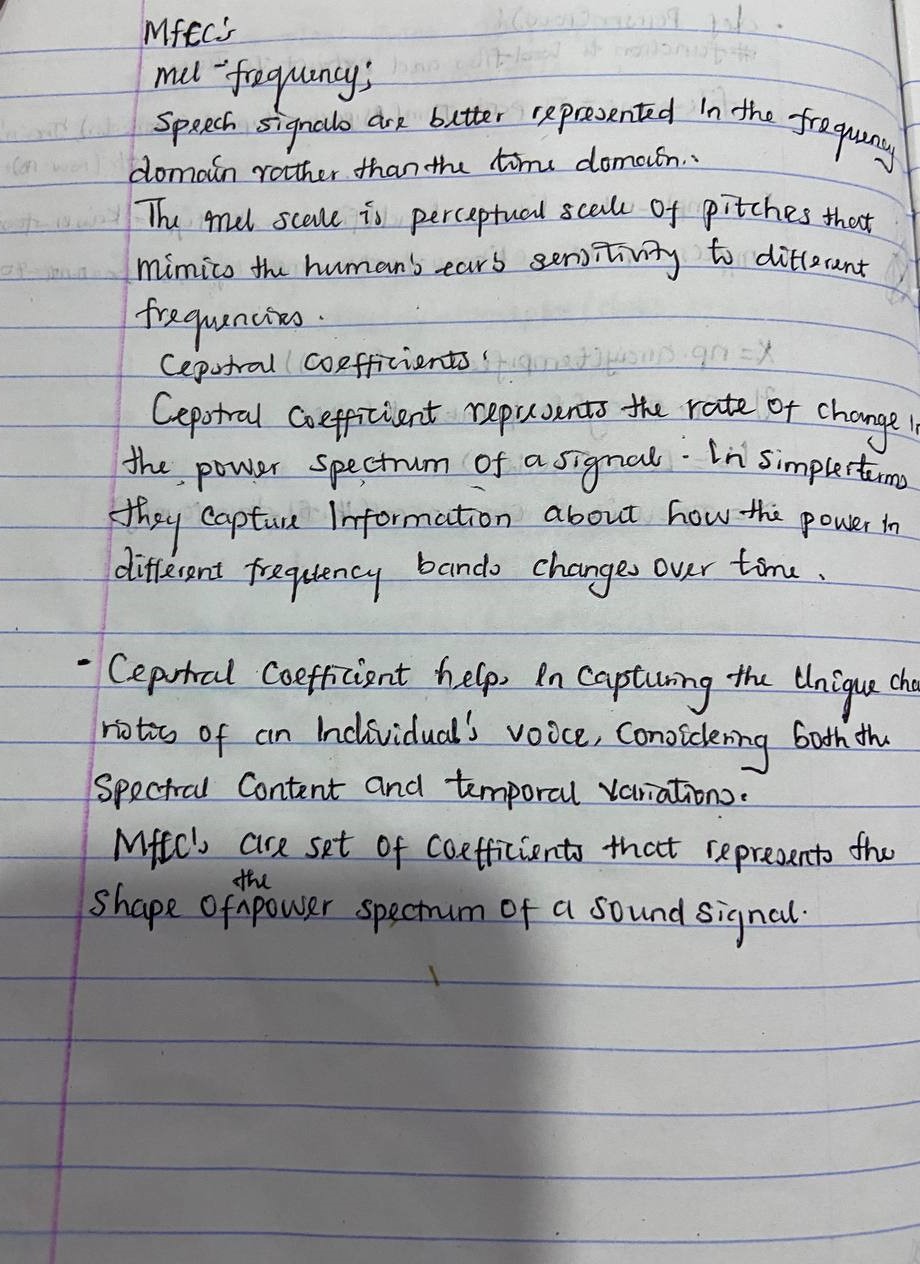 MFCC's
mel-frequency;
Speech signals are better represented in the frequency
domain rather than the time domain.
The mel scale is perceptual scale of pitches that
mimics the human's ear's sensitivity to different
frequencies.
Cepstral coefficients:
Cepstral Coefficient represents the rate of change in
the power spectrum of a signal. In simpler terms
they capture Information about how the power in
different frequency bands changes over time.
- Cepstral Coefficient helps In capturing the Unique cha
ristics of an Individual's voice, Considering both the
Spectral Content and temporal variations.
MFCC's are set of coefficients that represents the
shape of the power spectrum of a sound signal.